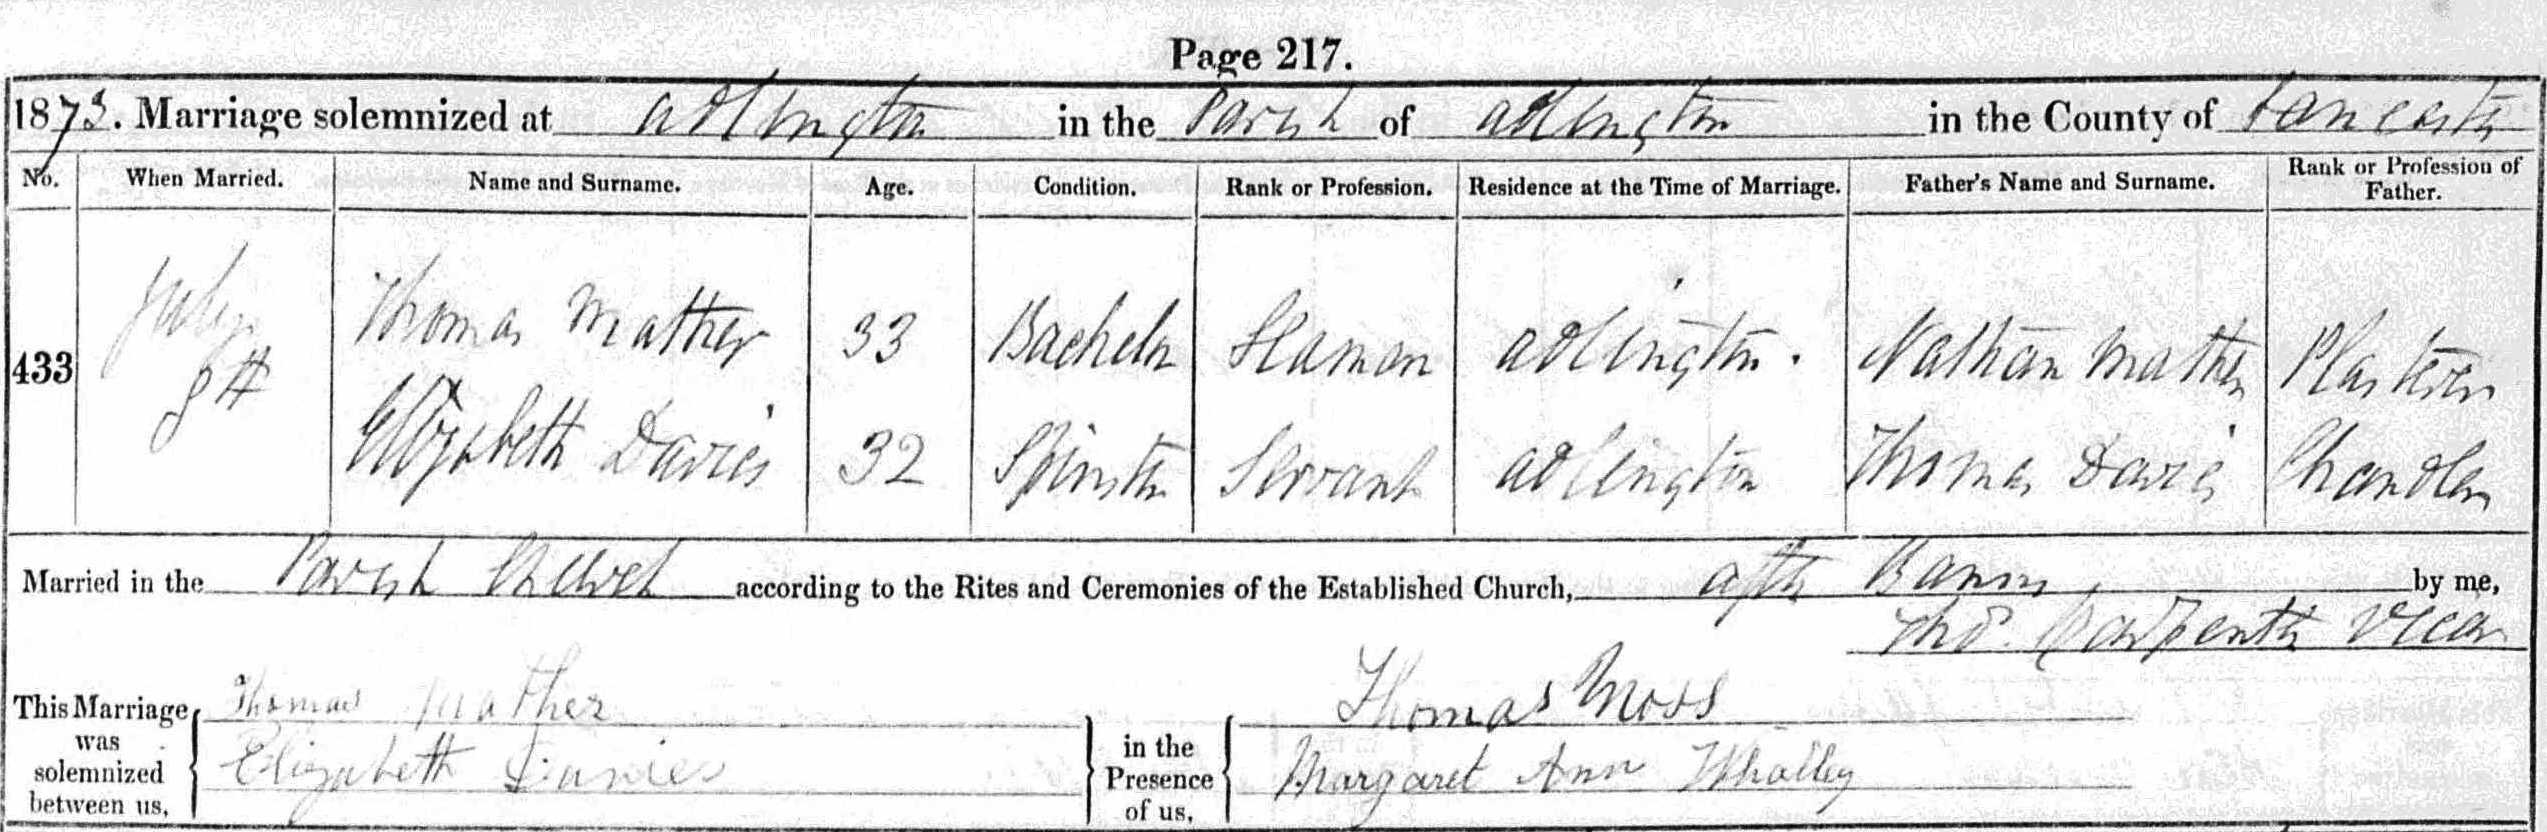 Page 217.
1873. Marriage solemnized at Adlington in the Parish of Adlington in the County of Lancaster
No. When Married. Name and Surname. Age. Condition. Rank or Profession. Residence at the Time of Marriage. Father's Name and Surname. Rank or Profession of Father.
433 July 8th Thomas Mather 33 Bachelor Seaman Adlington. Nathan Mather Plasterer
Elizabeth Davies 32 Spinster Servant Adlington Thomas Davies Chandler
Married in the Parish Church according to the Rites and Ceremonies of the Established Church, after Banns by me,
Thos. Carpenter Vicar
This Marriage was solemnized between us, Thomas Mather Elizabeth Davies in the Presence of us, Thomas Moss Margaret Ann Whalley